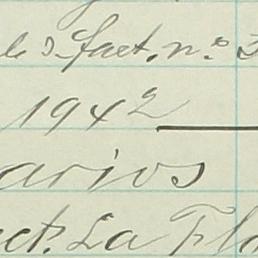 fact. n.º 3
1942
arios
ct. La Flo